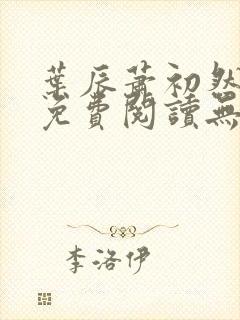 葉辰蕭初然
免費閱讀無
李洛伊